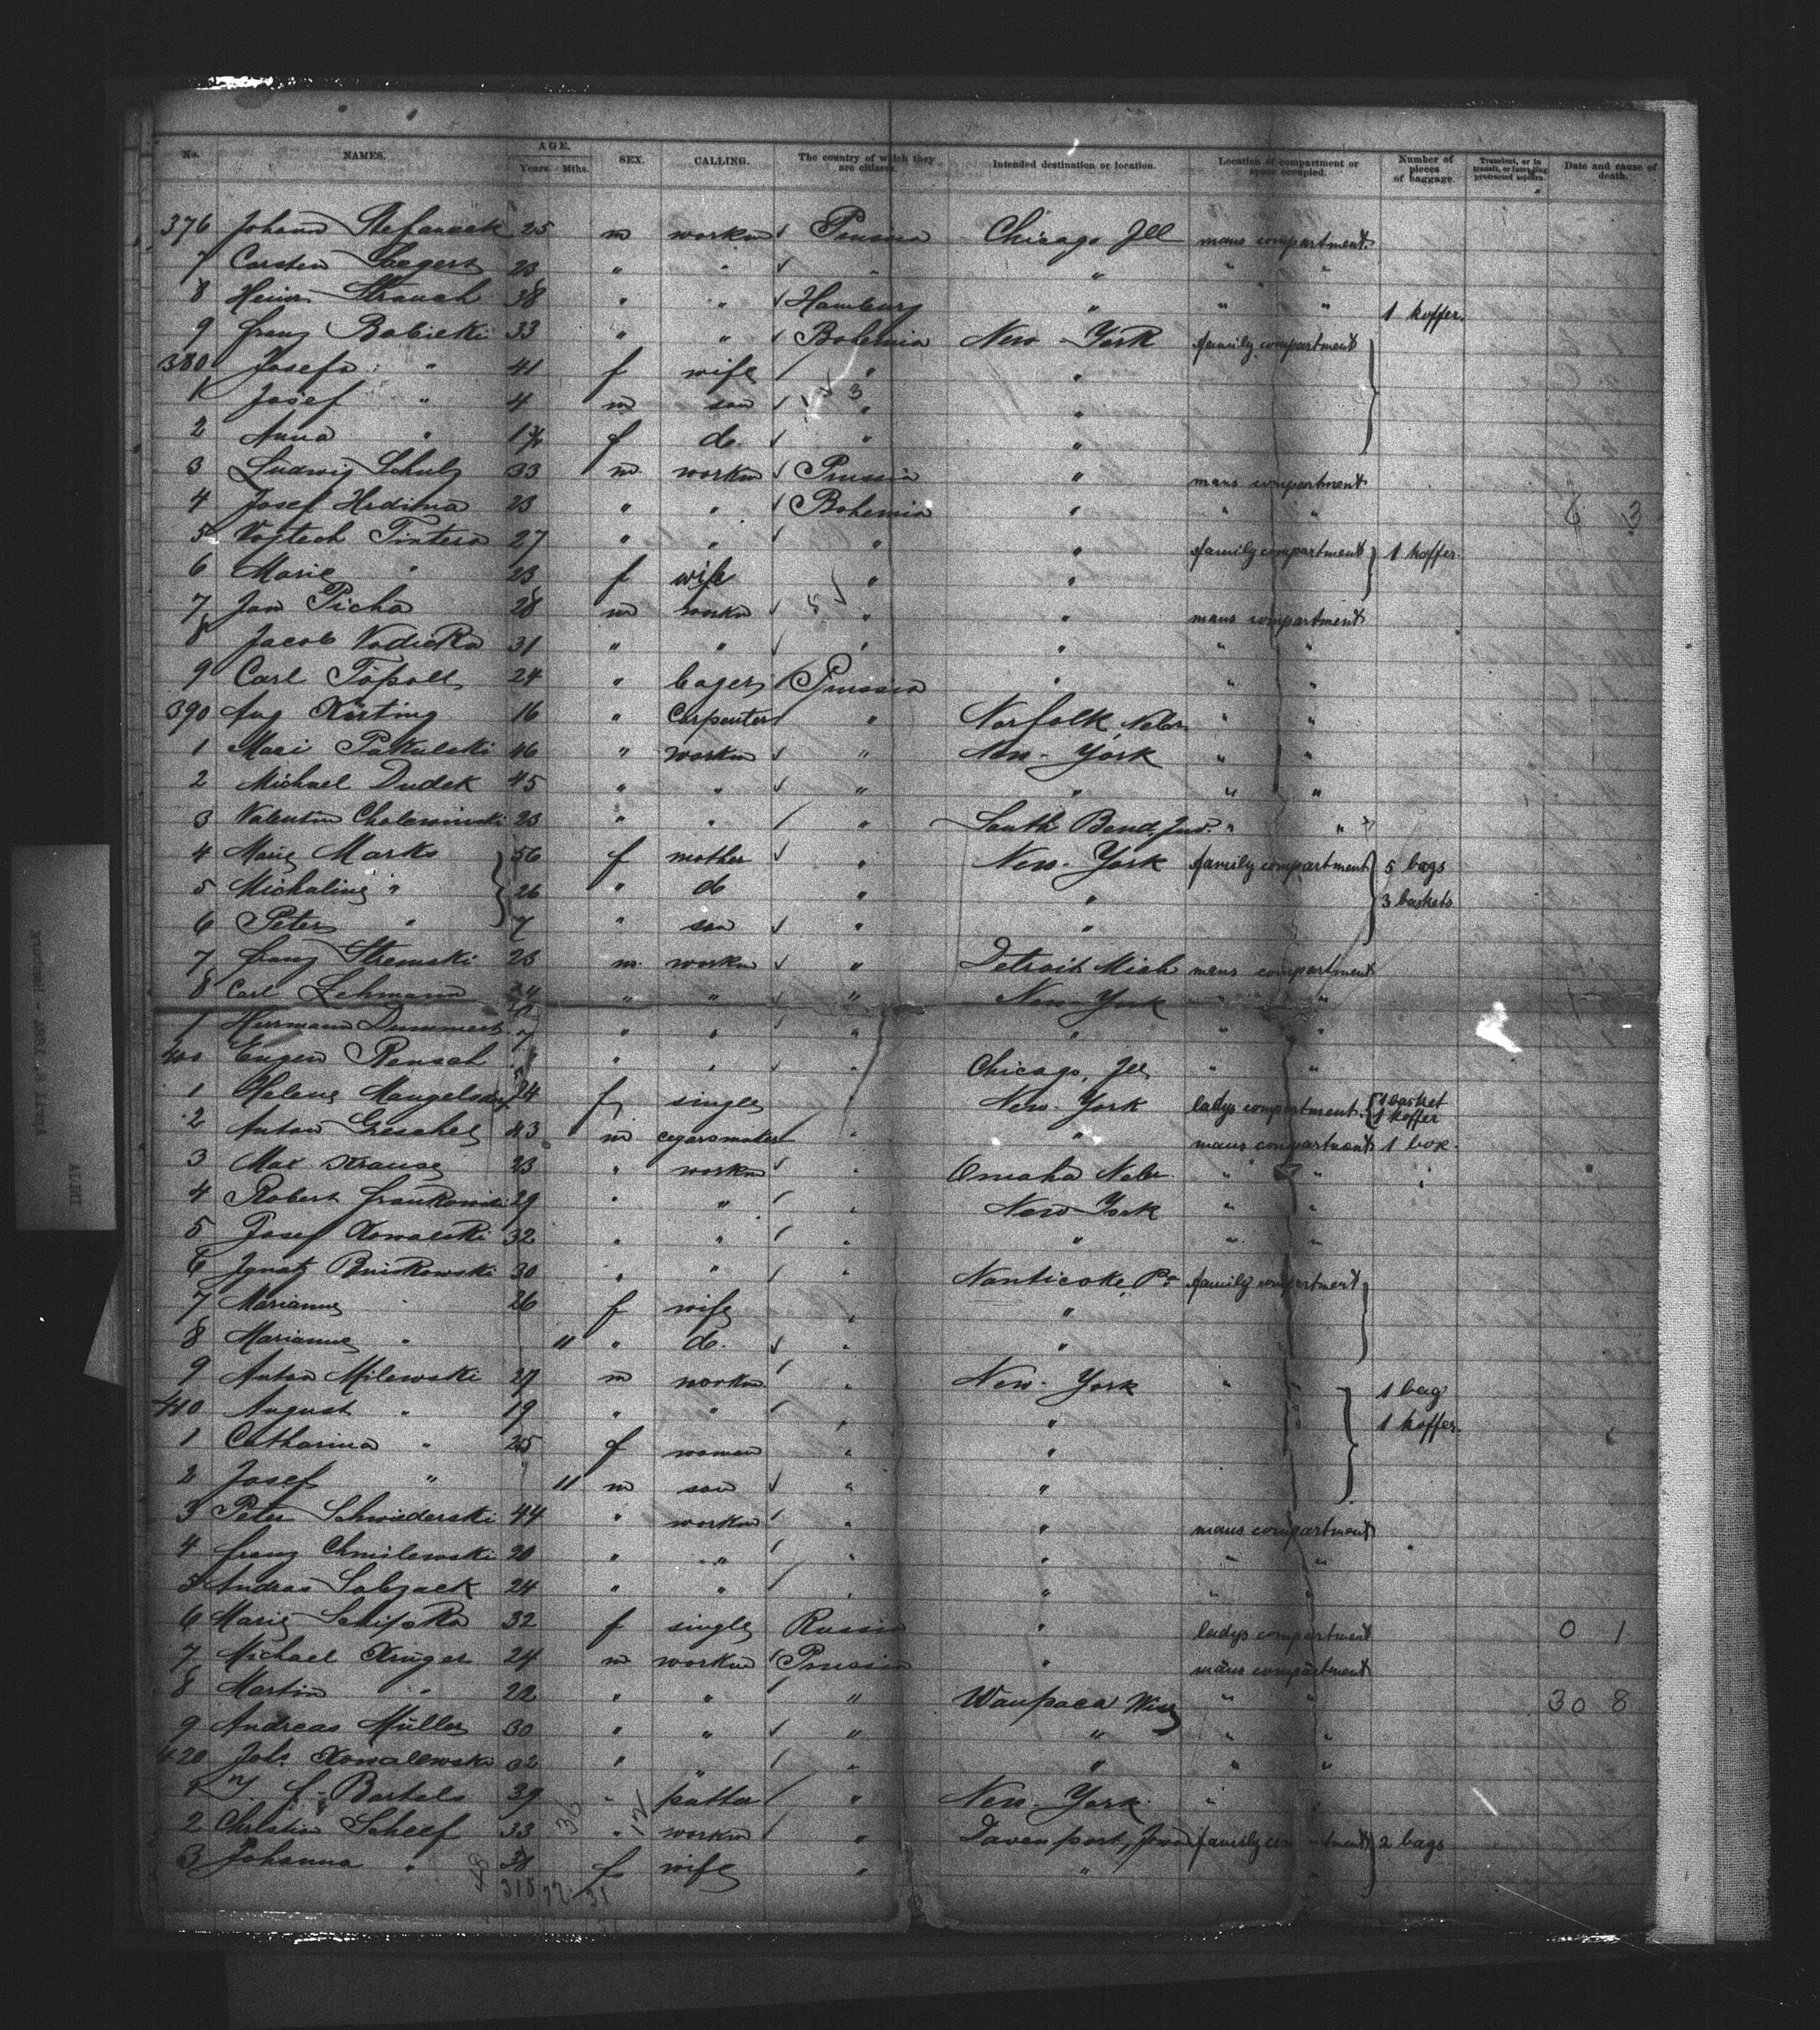 No. NAMES. AGE. Years. Mths. SEX. CALLING. The country of which they are citizens. Intended destination or location. Location of compartment or space occupied. Number of pieces of baggage. Transient, or in transit, or intending protracted sojourn. Date and cause of death.
376 Johann Stefanack 25 m workm Prussia Chicago Ill mans compartment
7 Carsten 23 " " " " " "
8 Heinr Strauch 38 " " Hamburg " " " 1 koffer.
9 Franz Babicki 33 " " Bohemia New-York family compartment
380 Josefa " 41 f wife " "
1 Josef " 4 m son " "
2 Anna " 1 f do. " "
3 Ludwig Schulz 33 m workm Prussia " mans compartment
4 Josef Hrdina 23 " " Bohemia " " " 6 3
5 Vojtech Tintera 27 " " " " family compartment 1 koffer.
6 Marie " 23 f wife " "
7 Jan Picha 28 m workm " " mans compartment
8 Jacob Vodicka 31 " " " " " "
9 Carl 24 " Prussia " " "
390 Aug Kürting 16 " Carpenter " Norfolk, Nebr. " "
1 Pakulski 46 " workm " New-York " "
2 Michael Dudek 45 " " " " " "
3 Valentin 23 " " " South Bend, Ind. " "
4 Marie Marks 56 f mother " New-York family compartment 5 bags
5 Michaline " 26 " do " " 3 baskets
6 Peter " 7 " son " "
7 Franz Stremski 23 m. workm " Detroit Mich mans compartment
8 Carl Lehmann " " " New-York " "
Herrmann Dummert " " " " " "
400 Eugen Rensch " " " " Chicago, Ill " "
1 Helene Mangelsdorf 24 f single " New-York ladys compartment 1 basket 1 koffer
2 Anton Greschel 43 m cegarsmaker " " mans compartment 1 box.
3 Max Krause 23 " workm " Omaha Nebr. " " "
4 Robert Frankowski 29 " " " New-York " "
5 Josef Kowalski 32 " " " " " "
6 Ignatz Bniskowski 30 " " " Nanticoke, Pa family compartment
7 Marianne " 26 f wife " "
8 Marianne " 11 " do. " "
9 Anton Milewski 27 m workm " New-York " " 1 bag
410 August " 19 " " " " 1 koffer.
1 Catharina " 25 f woman " "
2 Josef " 11 m son " "
3 Peter Schwiderski 44 " workm " " mans compartment
4 Franz Chmilewski 20 " " " " " "
5 Andreas 24 " " " " " "
6 Marie Schipka 32 f single Russia " ladys compartment 0 1
7 Michael Krüger 24 m workm Prussia " mans compartment
8 Martin " 22 " " " Waupaca Wisc " " 30 8
9 Andreas Müller 30 " " " " " "
420 Joh. Kowalewski 32 " " " " " "
F. Bartels 39 " " New-York " "
2 Christian Scheef 33 " workm " Davenport, Iowa family compartment 2 bags
3 Johanna " 38 f wife " "